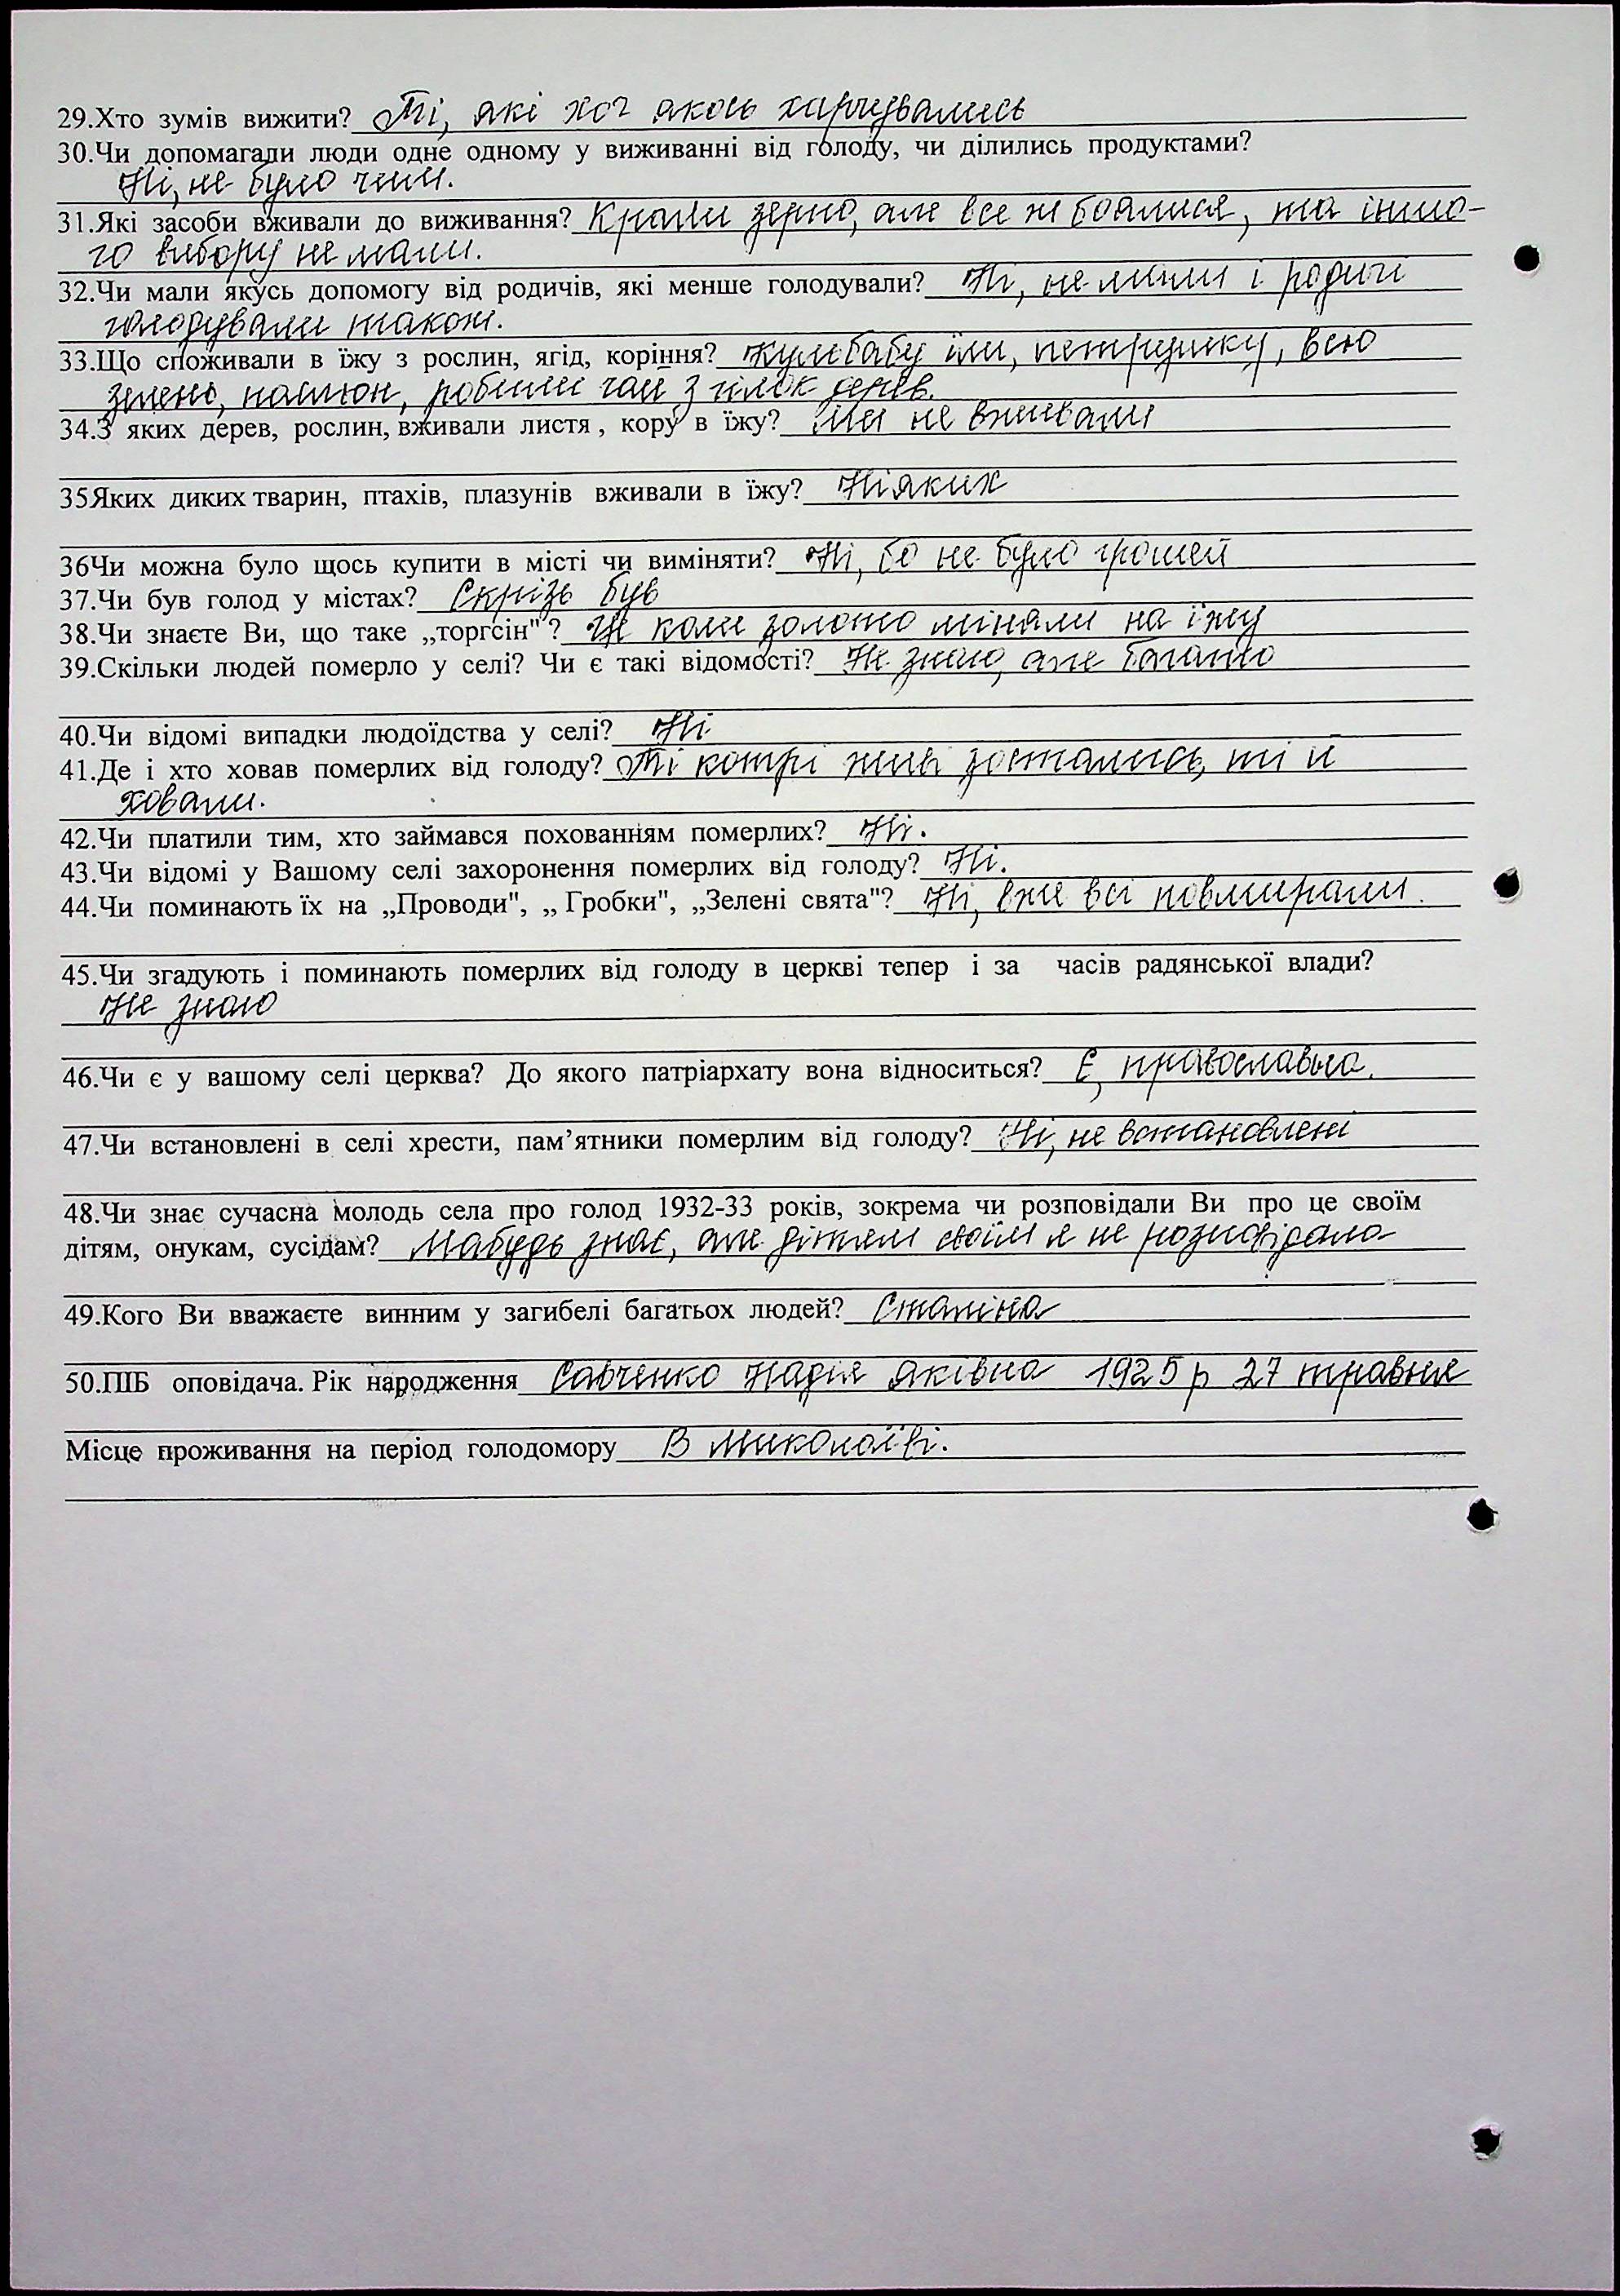 29.Хто зумів вижити? Ті, які хоч якось харчувались
30.Чи допомагали люди одне одному у виживанні від голоду, чи ділились продуктами?
Ні, не було чим.
31.Які засоби вживали до виживання? Крали зерно, але все ж боялися, та іншо-
го вибору не мали.
32.Чи мали якусь допомогу від родичів, які менше голодували? Ні, не мали і родичі
голодували також.
33.Що споживали в їжу з рослин, ягід, коріння? Кульбабу їли, петрушку, всю
зелень, пасльон, робили чай з гілок дерев.
34.З яких дерев, рослин, вживали листя , кору в їжу? Ми не вживали
35Яких диких тварин, птахів, плазунів вживали в їжу? Ніяких
36Чи можна було щось купити в місті чи виміняти? Ні, бо не було грошей
37.Чи був голод у містах? Скрізь був
38.Чи знаєте Ви, що таке „торгсін"? Це коли золото міняли на їжу
39.Скільки людей померло у селі? Чи є такі відомості? Не знаю, але багато
40.Чи відомі випадки людоїдства у селі? Ні
41.Де і хто ховав померлих від голоду? Ті котрі живі зостались, ті й
ховали.
42.Чи платили тим, хто займався похованням померлих? Ні.
43.Чи відомі у Вашому селі захоронення померлих від голоду? Ні.
44.Чи поминають їх на „Проводи", „ Гробки", „Зелені свята"? Ні, вже всі повмирали.
45.Чи згадують і поминають померлих від голоду в церкві тепер і за часів радянської влади?
Не знаю
46.Чи є у вашому селі церква? До якого патріархату вона відноситься? Є, православна.
47.Чи встановлені в селі хрести, пам’ятники померлим від голоду? Ні, не встановлені
48.Чи знає сучасна молодь села про голод 1932-33 років, зокрема чи розповідали Ви про це своїм
дітям, онукам, сусідам? Мабудь знає, але дітям своїм я не розповідала
49.Кого Ви вважаєте винним у загибелі багатьох людей? Сталіна
50.ПІБ оповідача. Рік народження Савченко Надія Яківна 1925 р 27 травня
Місце проживання на період голодомору В Миколаїві.